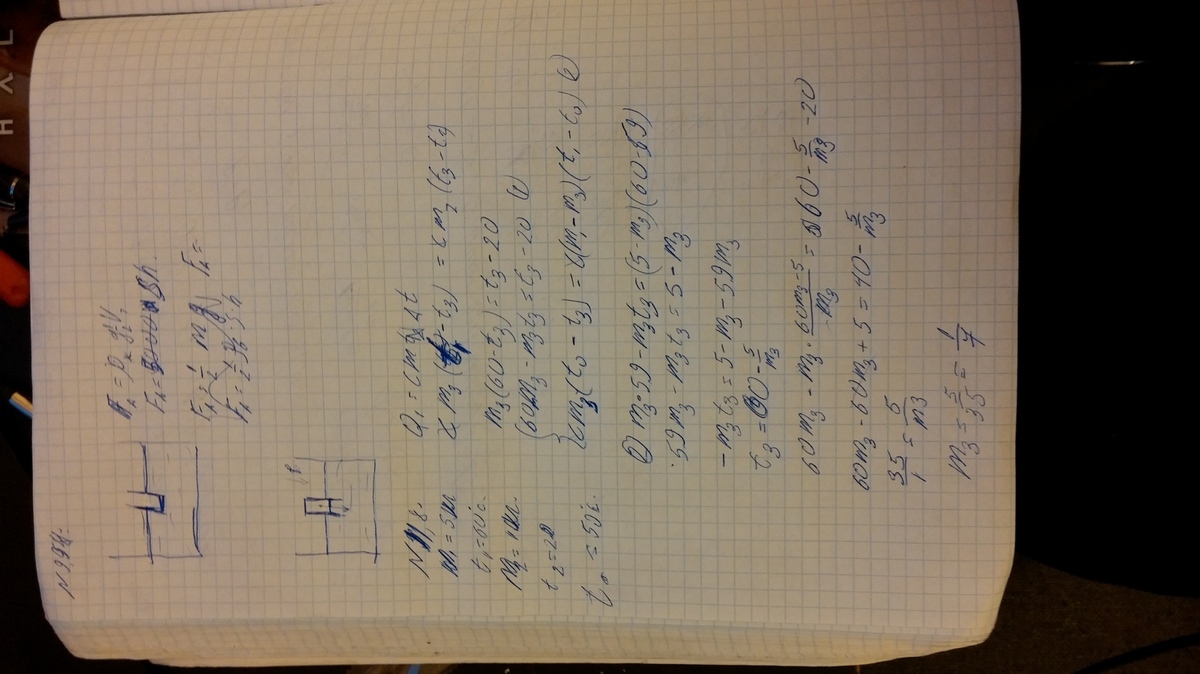 N 3,994.
F_A = ρ_ж gV
F_A = Sh
F_A = \frac{1}{2} mg F_A =
N 11,8.
m₁ = 5 кг
t₁ = 60°C.
m₂ = 1 кг.
t₂ = 20
t₀ = 59°C.
Q₁ = cmΔt
c m₃ (t₁ - t₃) = c m₂ (t₃ - t₂)
m₃(60 - t₃) = t₃ - 20
60m₃ - m₃t₃ = t₃ - 20 (1)
cm₃(t₀ - t₃) = c(m₁ - m₃)(t₁ - t₀) (2)
2) m₃·59 - m₃t₃ = (5 - m₃)(60 - 59)
59m₃ - m₃t₃ = 5 - m₃
-m₃t₃ = 5 - m₃ - 59m₃
t₃ = 60 - \frac{5}{m₃}
60m₃ - m₃ · \frac{60m₃ - 5}{m₃} = 60 - \frac{5}{m₃} - 20
60m₃ - 60m₃ + 5 = 40 - \frac{5}{m₃}
\frac{35}{1} = \frac{5}{m₃}
m₃ = \frac{5}{35} = \frac{1}{7}